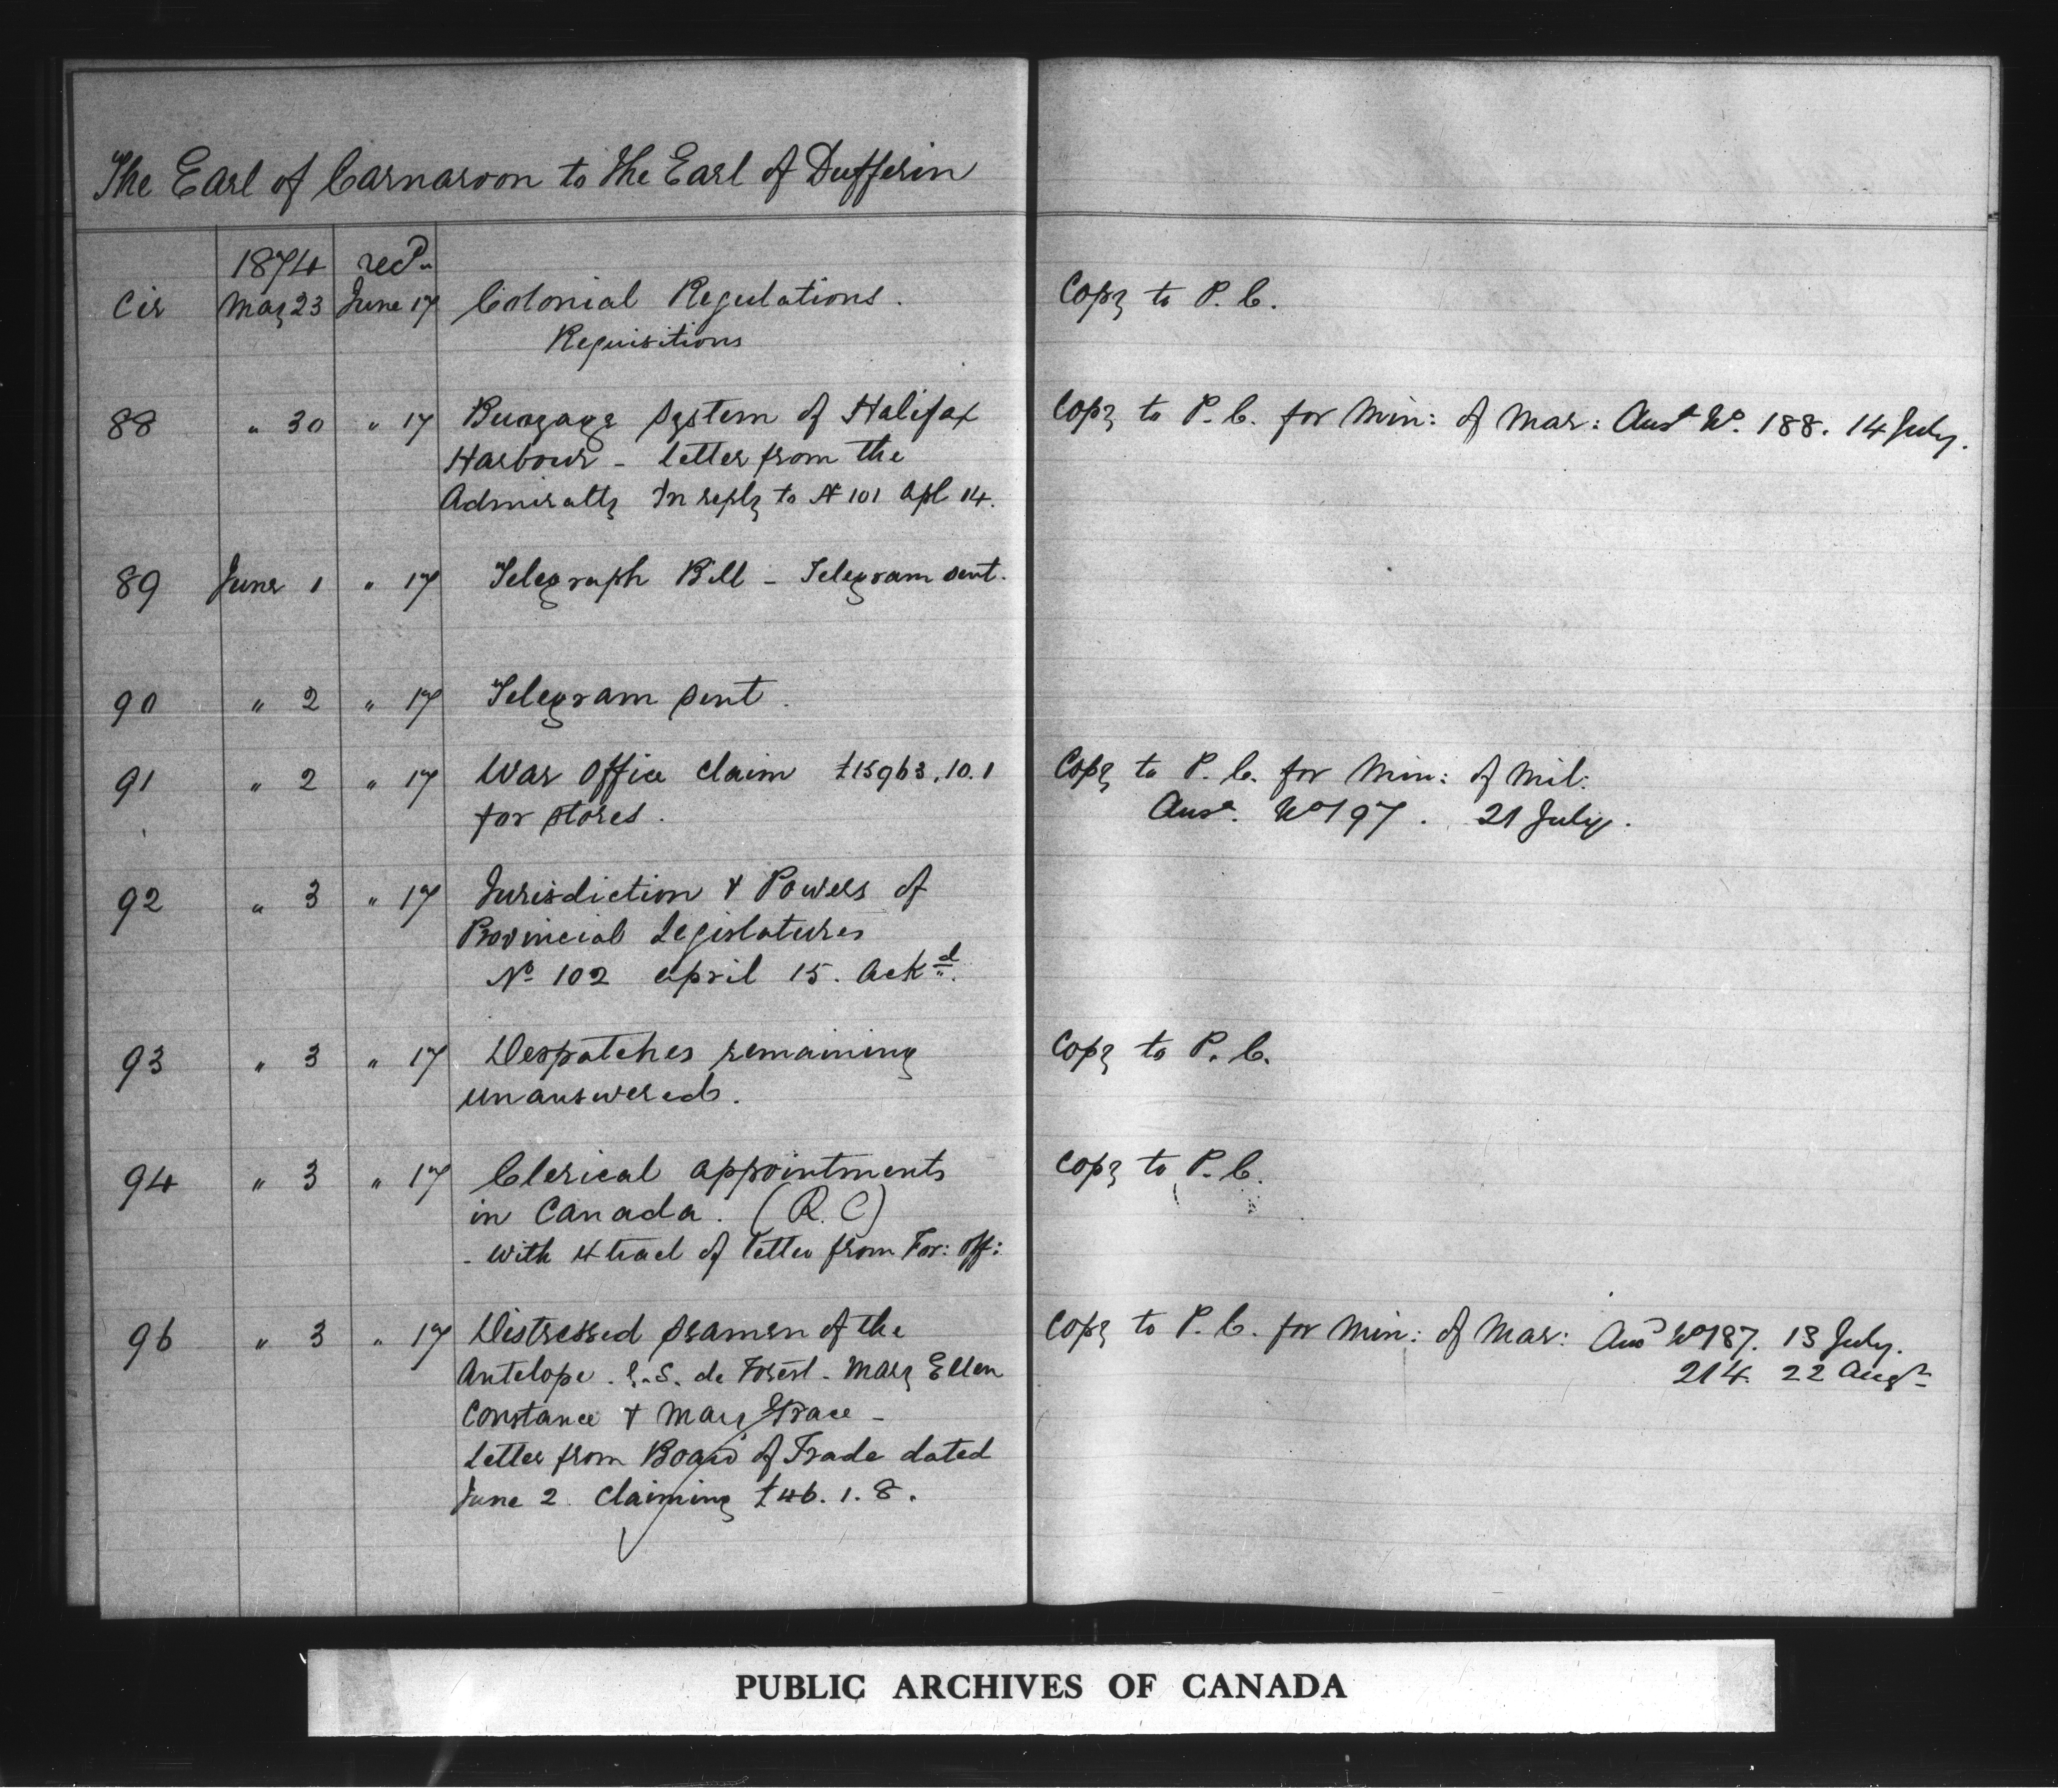 The Earl of Carnarvon to The Earl of Dufferin
1874 recd
Cir May 23 June 17 Colonial Regulations. Copy to P. C.
Requisitions
88 " 30 " 17 Buoyage System of Halifax Copy to P. C. for Min: of Mar: Ansd No. 188. 14 July.
Harbour - letter from the
Admiralty In reply to No 101 Apl 14.
89 June 1 " 17 Telegraph Bill - Telegram sent.
90 " 2 " 17 Telegram sent.
91 " 2 " 17 War Office claim £15963.10.1 Copy to P. C. for Min: of Mil:
for stores. Ansd. No 197. 21 July.
92 " 3 " 17 Jurisdiction & Powers of
Provincial Legislatures
No 102 April 15. Ackd.
93 " 3 " 17 Despatches remaining Copy to P. C.
unanswered.
94 " 3 " 17 Clerical appointments Copy to P. C.
in Canada. (R. C)
- with of letter from For: Off:
96 " 3 " 17 Distressed seamen of the Copy to P. C. for Min: of Mar: Ansd No 187. 13 July.
Antelope. S. de Forest - Mary Ellen 214. 22 Augt
Constance & Mary Grace -
Letter from Board of Trade dated
June 2 Claiming £46. 1. 8.
PUBLIC ARCHIVES OF CANADA